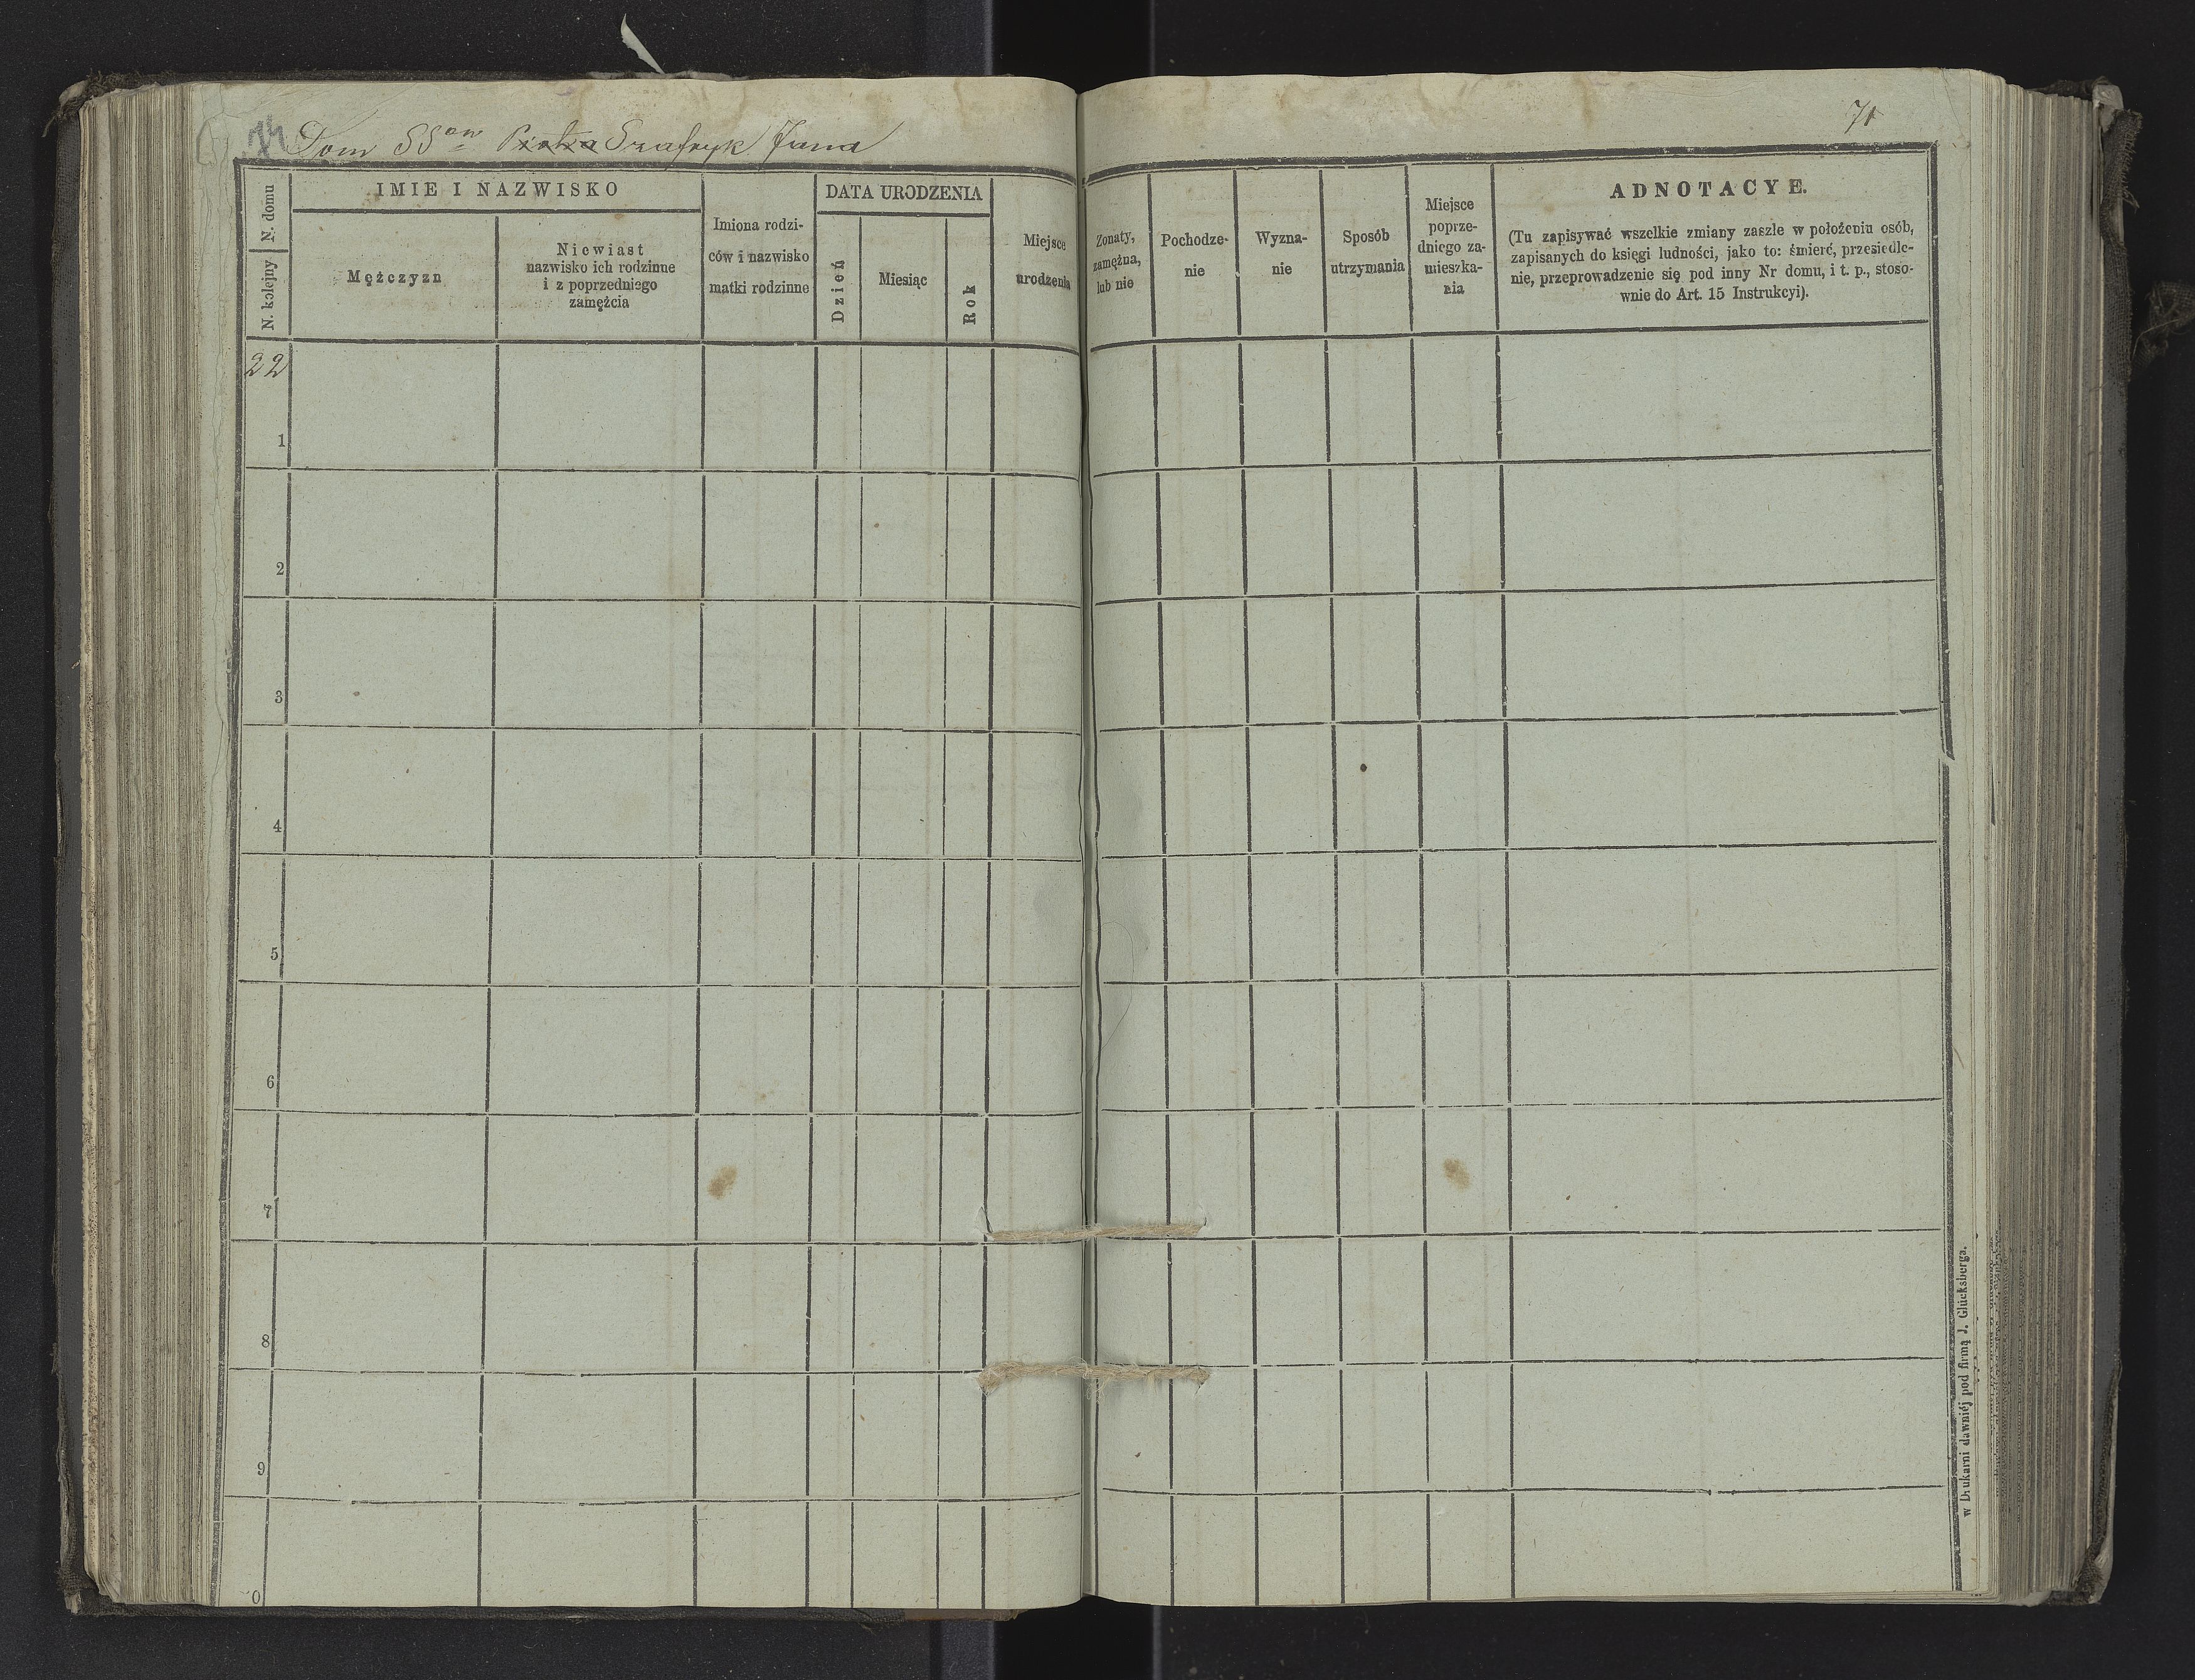 71
Dom SSów Piotra Szafryk Jana
N. domu
N. kolejny
IMIE I NAZWISKO
Mężczyzn
Niewiast
nazwisko ich rodzinne
i z poprzedniego
zamężcia
Imiona rodzi-
ców i nazwisko
matki rodzinne
DATA URODZENIA
Dzień
Miesiąc
Rok
Miejsce
urodzenia
Zonaty,
zamężna,
lub nie
Pochodze-
nie
Wyzna-
nie
Sposób
utrzymania
Miejsce
poprze-
dniego za-
mieszka-
nia
ADNOTACYE.
(Tu zapisywać wszelkie zmiany zaszłe w położeniu osób,
zapisanych do księgi ludności, jako to: śmierć, przesiedle-
nie, przeprowadzenie się pod inny Nr domu, i t. p., stoso-
wnie do Art. 15 Instrukcyi).
22
1
2
3
4
5
6
7
8
9
0
w Drukarni dawniéj pod firmą J. Glücksberga.